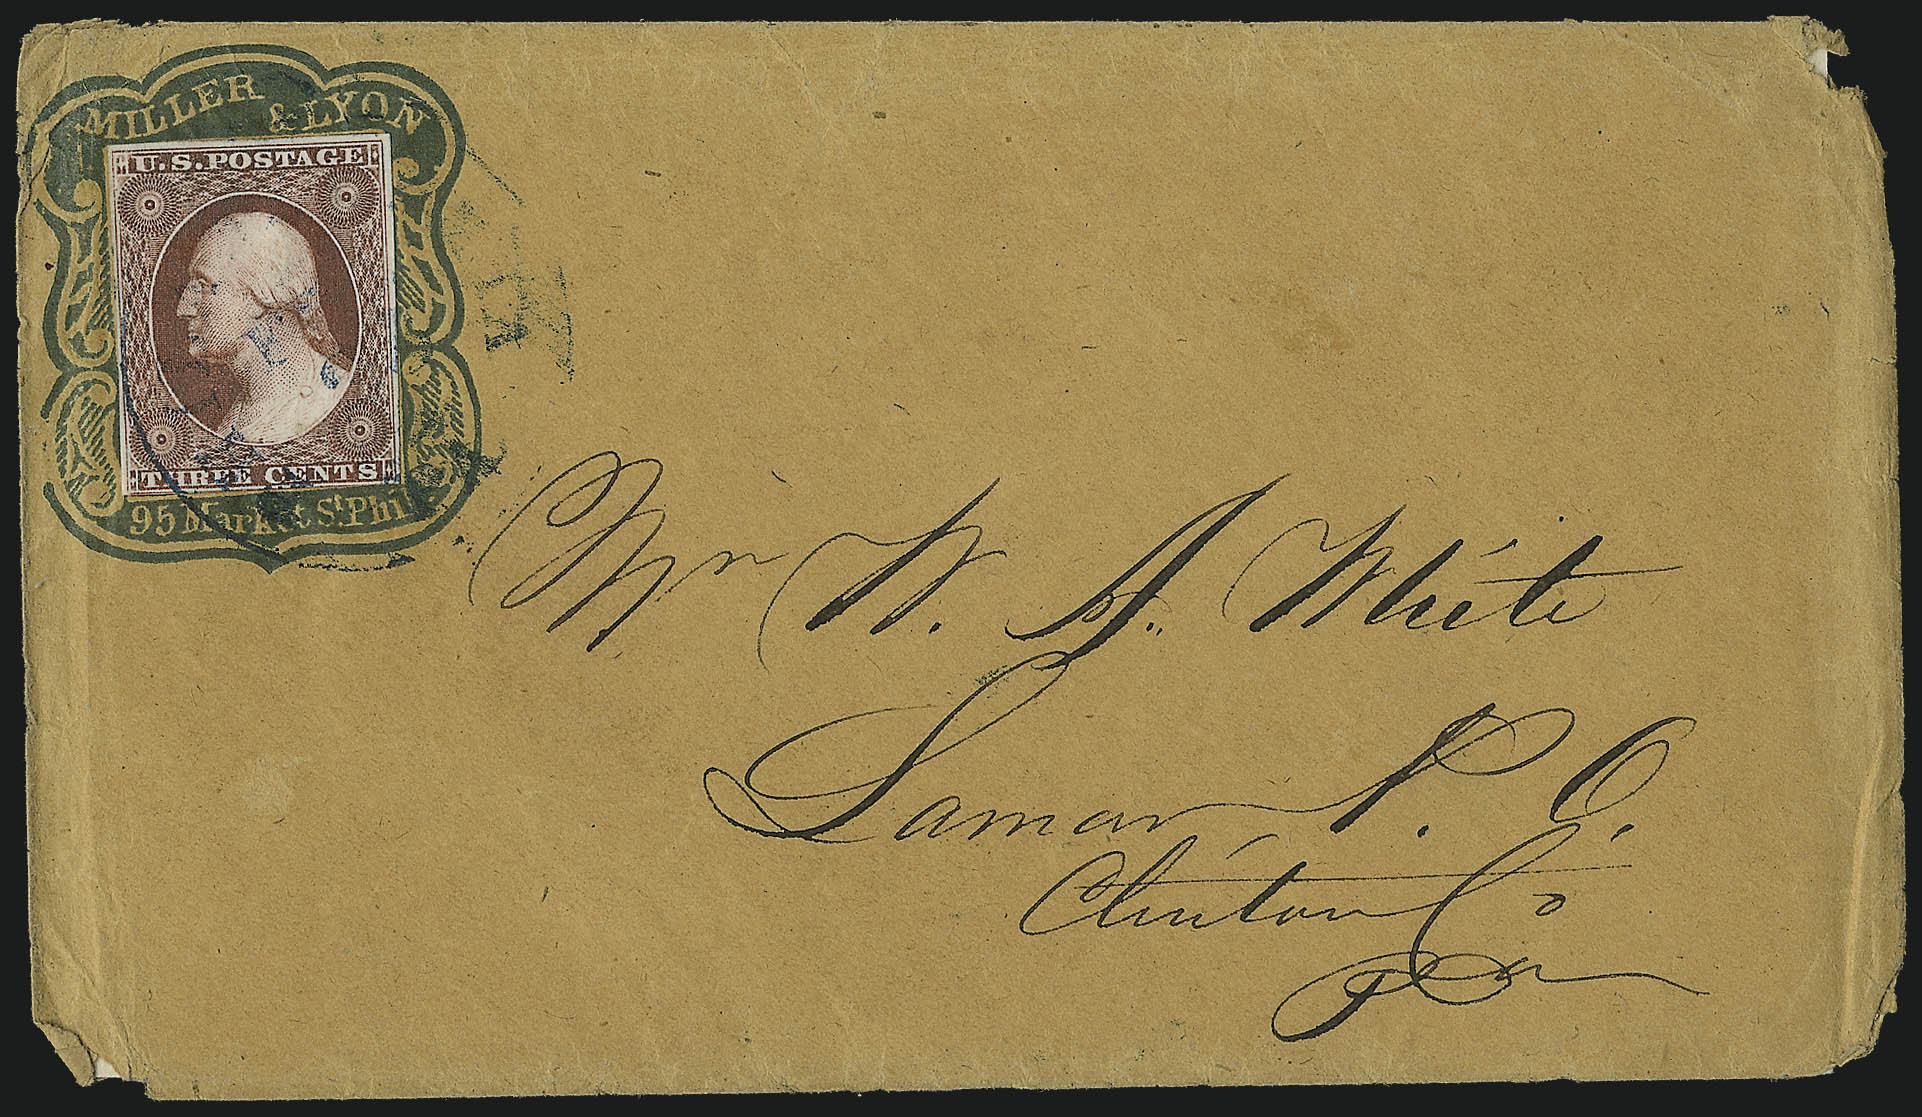 MILLER & LYON
U.S. POSTAGE
THREE CENTS
95 Market St. Phil
Mr W. A. White
Lamar P. O.
Clinton Co
Pa